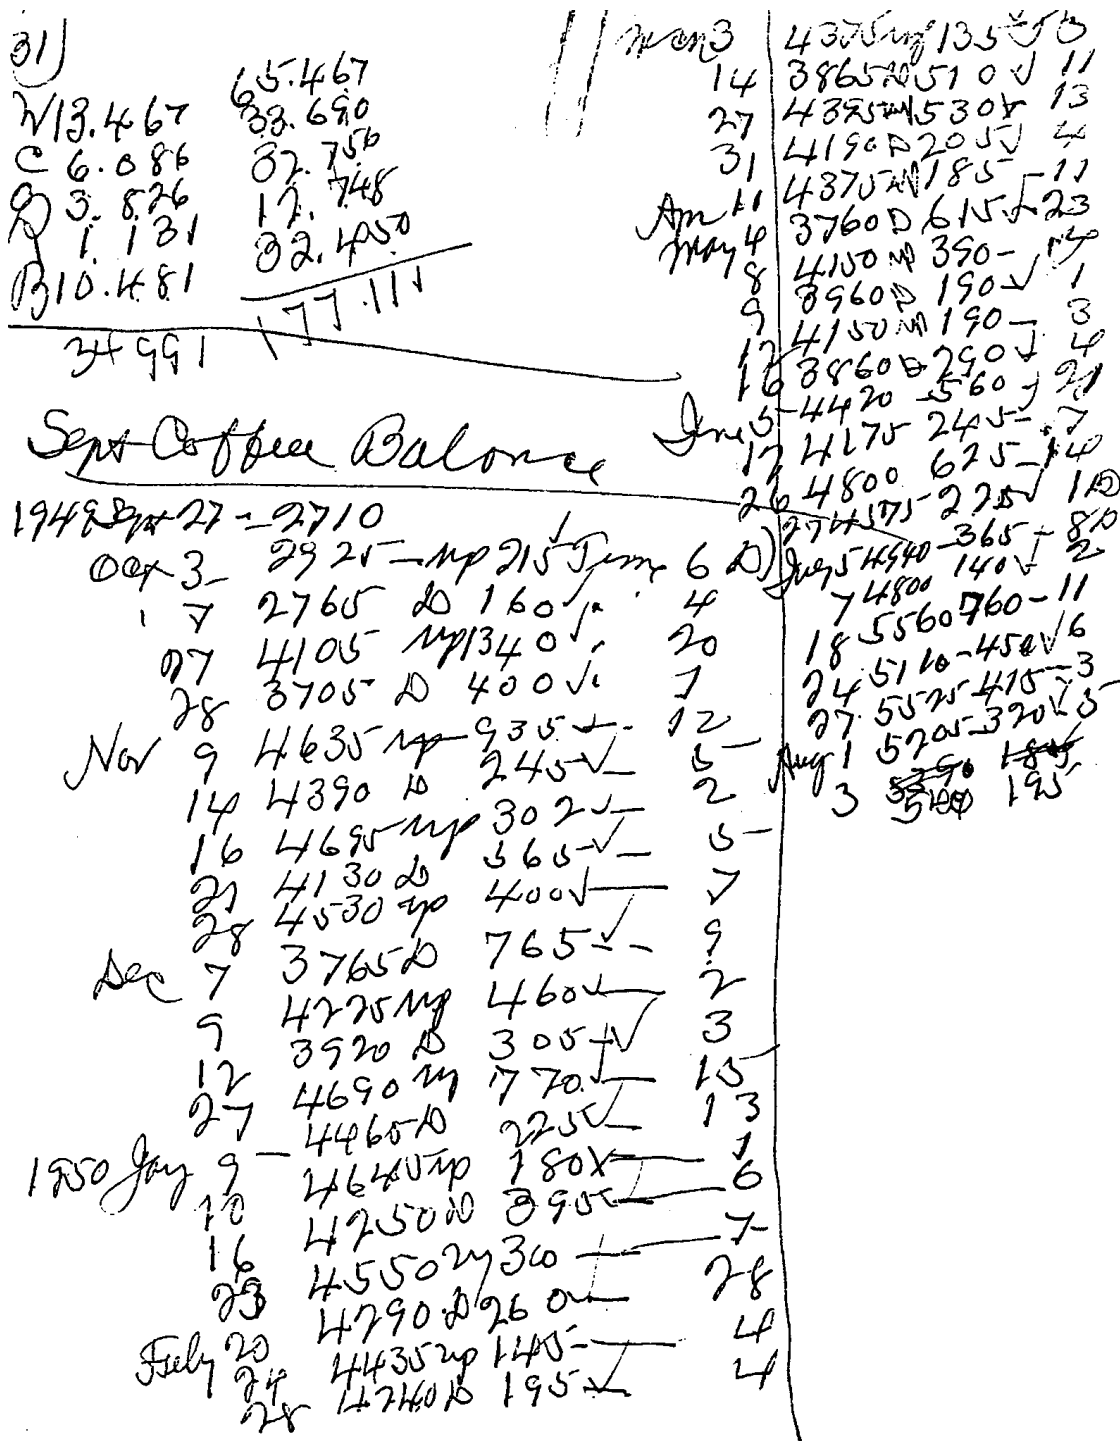 31)
W 13.467
C 6.086
3.826
1.131
B 10.481
34991
65.467
33.690
32.756
12.748
32.450
177.111
Sept Coffee Balance
1949 Sept 27 - 2710
Oct 3 - 2925 - up 215 ✓ Time 6 D)
7 2765 D 160 ✓ 4
27 4105 up 1340 ✓ 20
28 3705 D 400 ✓ 1
Nov 9 4635 up 935 - 12
14 4390 D 245 ✓ - 5
16 4695 up 302 ✓ - 2
21 4130 D 565 ✓ - 5
28 4530 up 400 ✓ - 7
Dec 7 3765 D 765 ✓ - 9
9 4225 up 460 ✓ - 2
12 3920 D 305 - ✓ 3
27 4690 up 770 ✓ - 15
1950 Jay 9 - 4465 D 225 ✓ - 13
10 4645 up 180 - 1
16 4250 D 395 - 6
23 4550 up 30 - 7
Feby 20 4290 D 260 - 28
24 4435 up 145 - 4
28 4240 D 195 ✓ 4
3 4375 up 135 ✓ 3
14 3865 D 510 ✓ 11
27 4395 up 530 13
31 4190 D 205 ✓ 4
11 4375 up 185 - 11
May 4 3760 D 615 ✓ 23
8 4150 up 390 - 4
9 3960 D 190 ✓ 1
12 4150 up 190 - 3
16 3860 D 290 ✓ 4
June 5 - 4420 - 560 21
12 4175 245 - 7
26 4800 625 - 14
27 4575 - 225 ✓ 1 D
July 5 4940 - 365 - 8 D
7 4800 140 ✓ 2
18 5560 760 - 11
24 5110 - 450 ✓ 6
27 5525 415 - 3
Aug 1 5205 - 320 ✓ 5
3 195